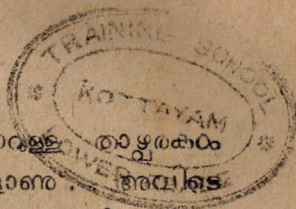 TRAINING SCHOOL
KOTTAYAM
താഴ്വരകൾ
ളാണു്. അവിടെ